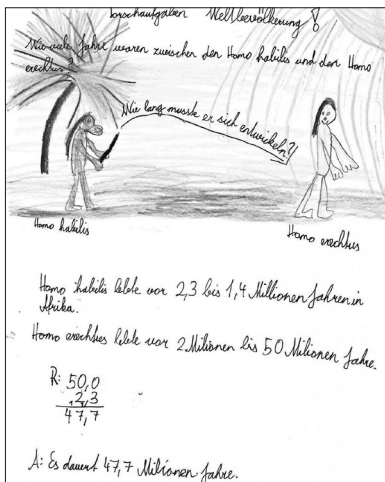 Forschaufgaben Weltbevölkerung!
Wie viele Jahre waren zwischen den Homo habilis und den Homo
erechtus?
Wie lang musste er sich entwickeln?!
Homo habilis
Homo erechtus
Homo habilis lebte vor 2,3 bis 1,4 Millionen Jahren in
Afrika.
Homo erechtus lebte vor 2 Milionen bis 50 Milionen Jahre.
R: 50,0
2,3
47,7
A: Es dauert 47,7 Milionen Jahre.